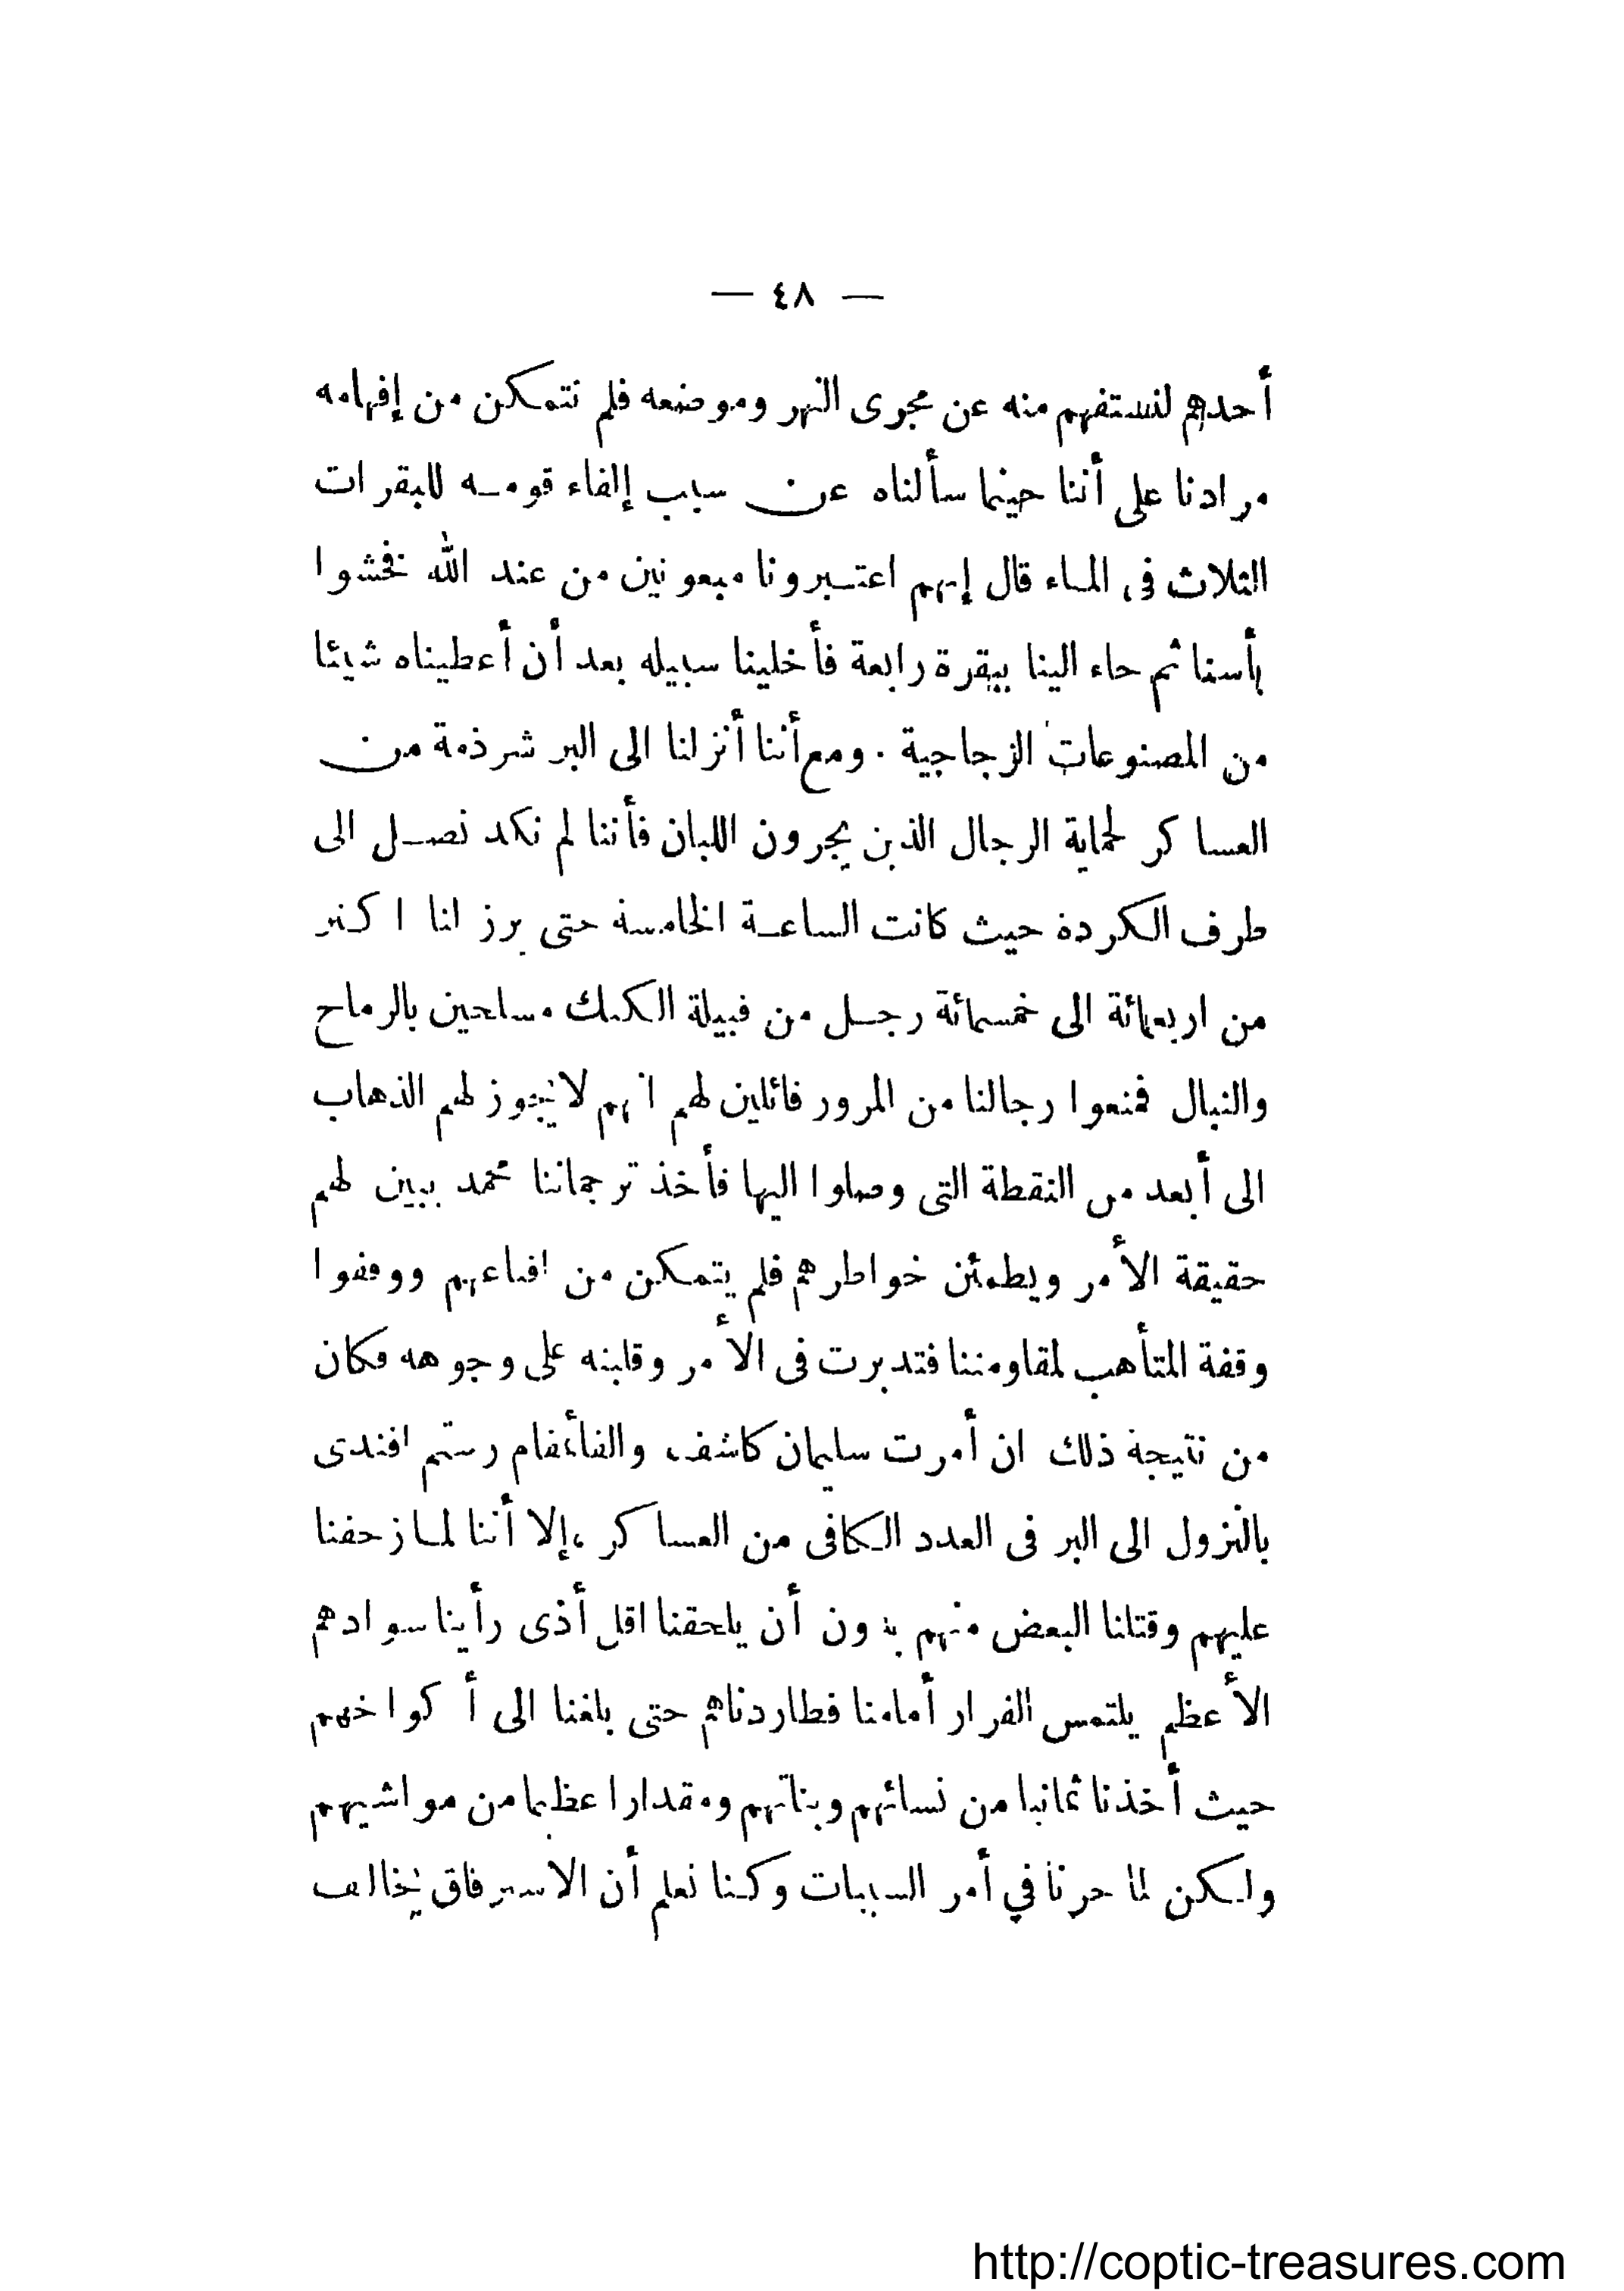 — ٤٨ —
أحدهم لنستفهم منه عن مجرى النهر وموضعه فلم نتمكن من إفهامه
مرادنا على أننا حينما سألناه عن سبب إلقاء قومه للبقرات
الثلاث فى الماء قال إنهم اعتبرونا مبعوثين من عند الله فخشوا
بأسنا ثم جاء الينا ببقرة رابعة فأخلينا سبيله بعد أن أعطيناه شيئا
من المصنوعات الزجاجية . ومع أننا أنزلنا الى البر شرذمة من
العساكر لحماية الرجال الذين يجرون اللبان فأننا لم نكد نصل الى
طرف الكردة حيث كانت الساعة الخامسة حتى برز لنا اكثر
من اربعمائة الى خمسمائة رجل من قبيلة الكيك مسلحين بالرماح
والنبال فمنعوا رجالنا من المرور قائلين لهم انهم لا يجوز لهم الذهاب
الى أبعد من النقطة التى وصلوا اليها فأخذ ترجماننا محمد يبين لهم
حقيقة الأمر ويطمئن خواطرهم فلم يتمكن من اقناعهم ووقفوا
وقفة المتأهب لمقاومتنا فتدبرت فى الأمر وقلبته على وجوهه فكان
من نتيجة ذلك ان أمرت سليمان كاشف والقائمقام رستم افندى
بالنزول الى البر فى العدد الكافى من العساكر ، إلا أننا لما زحفنا
عليهم وقتلنا البعض منهم بدون أن يلحقنا اقل أذى رأينا سوادهم
الأعظم يلتمس الفرار أمامنا فطاردناهم حتى بلغنا الى أكواخهم
حيث أخذنا ثمانيا من نسائهم وبناتهم ومقدارا عظيما من مواشيهم
ولكن لما حرنا في أمر السبيات وكنا نعلم أن الاسترقاق يخالف
http://coptic-treasures.com